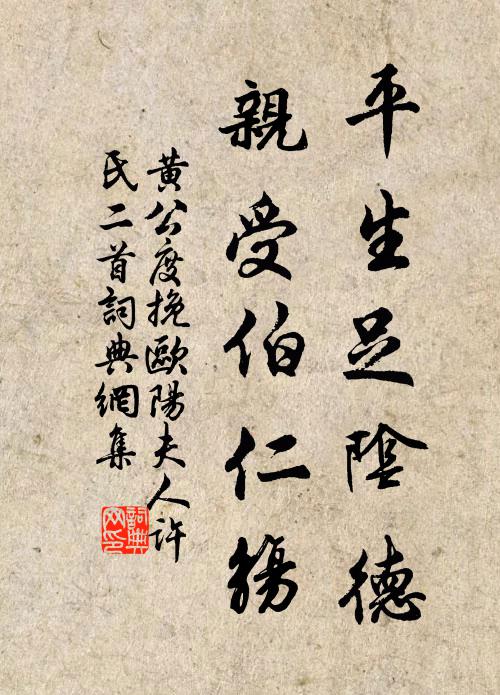 平生足陰德
親受伯仁觴
黄公度挽歐陽夫人許
氏二首詞典網集
詞典
网印